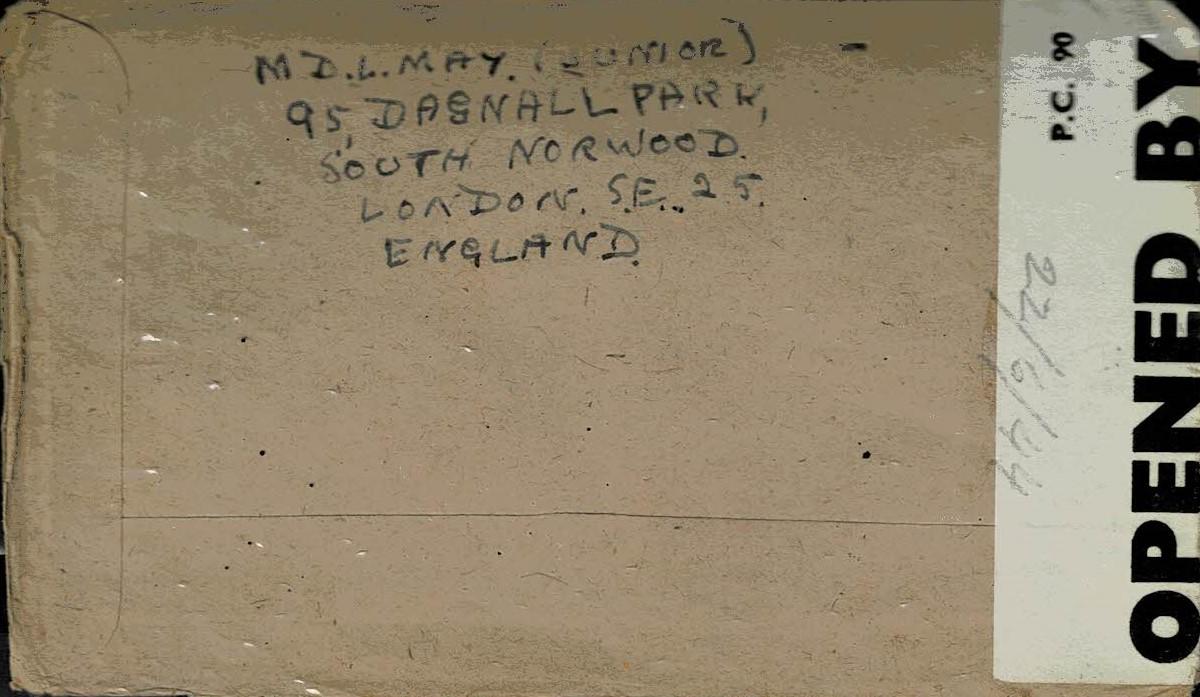 M D.L. MAY. (JUNIOR) -
95, DAGNALL PARK,
SOUTH NORWOOD.
LONDON. S.E. 25.
ENGLAND.
P.C. 90
OPENED BY
22/6/44